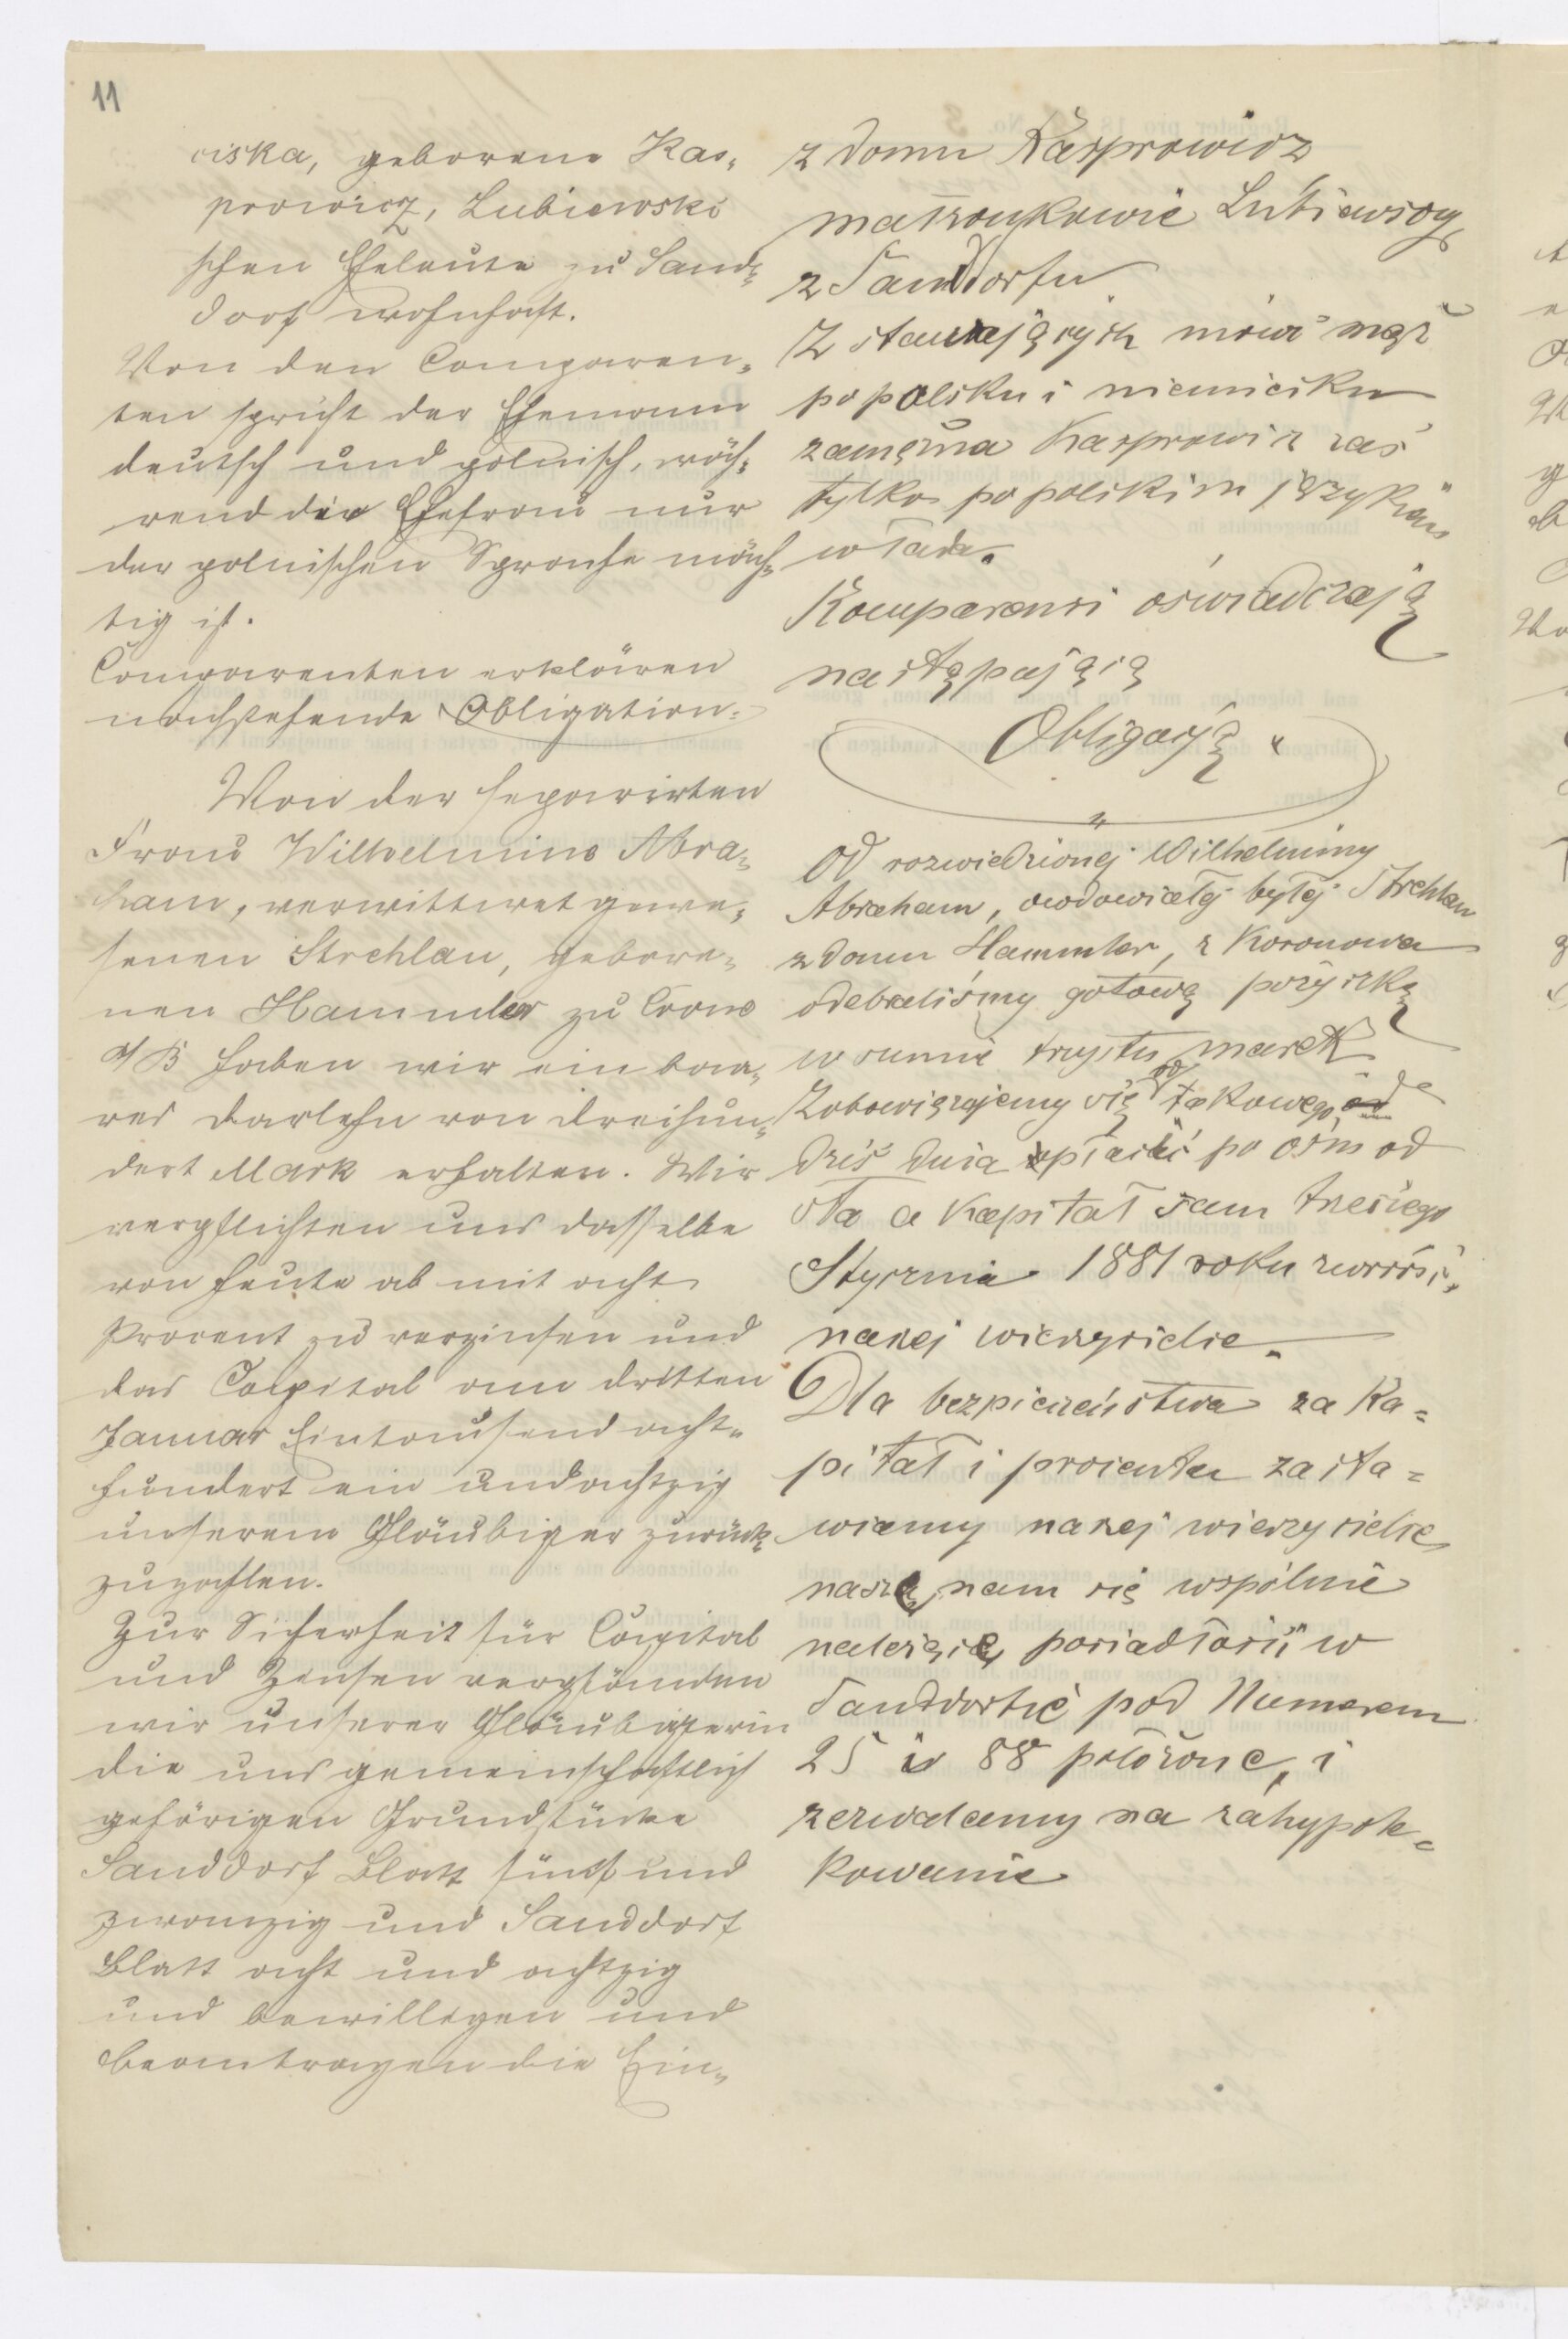 11
ciska, geborene Kas-
prowicz, Lubiewski
schen Eheleute zu Sand-
dorf wohnhaft.
Von den Comparen-
ten spricht der Ehemann
deutsch und polnisch, wäh-
rend die Ehefrau nur
der polnischen Sprache mäch-
tig ist.
Comparenten erklären
nachstehende Obligation:
Von der separirten
Frau Wilhelmine Abra-
ham, verwittwet gewe-
senen Strehlau, gebore-
nen Hammler zu Crone
a/B haben wir ein baa-
res Darlehn von dreihun-
dert Mark erhalten. Wir
verpflichten uns dasselbe
von heute ab mit acht
Procent zu verzinsen und
das Capital am dritten
Januar Eintausend acht-
hundert ein und achtzig
unserem Gläubiger zurück-
zuzahlen.
Zur Sicherheit für Capital
und Zinsen verpfänden
wir unserer Gläubigerin
die uns gemeinschaftlich
gehörigen Grundstücke
Sanddorf Blatt fünf und
zwanzig und Sanddorf
Blatt acht und achtzig
und bewilligen und
beantragen die Ein-
z domu Kasprowicz
małżonkowie Lubiewscy
z Sanddorfu
Z stawających mówi mąż
po polsku i niemiecku
zamężna Kasprowicz zaś
tylko po polskim językiem
włada.
Komparenci oświadczają
następającą
Obligacyą
Od rozwiedzionej Wilhelminy
Abraham, owdowiałej byłej Strehlau
z domu Hammler, z Koronowa
odebraliśmy gotową pożyczkę
w sumie trzystu marek
Zobowięzujemy się od takowego
dziś dnia płacić po ośm od
sta a kapitał sam trzeciego
Stycznia 1881 roku zwrócić
naszej wierzycielce.
Dla bezpieczeństwa za ka-
pitał i procenta zasta-
wiamy naszej wierzycielce
naszą nam się wspólnie
należące posiadłości w
Sanddorfie pod Numerem
25 i 88 położone, i
zezwalamy na zahypote-
kowanie